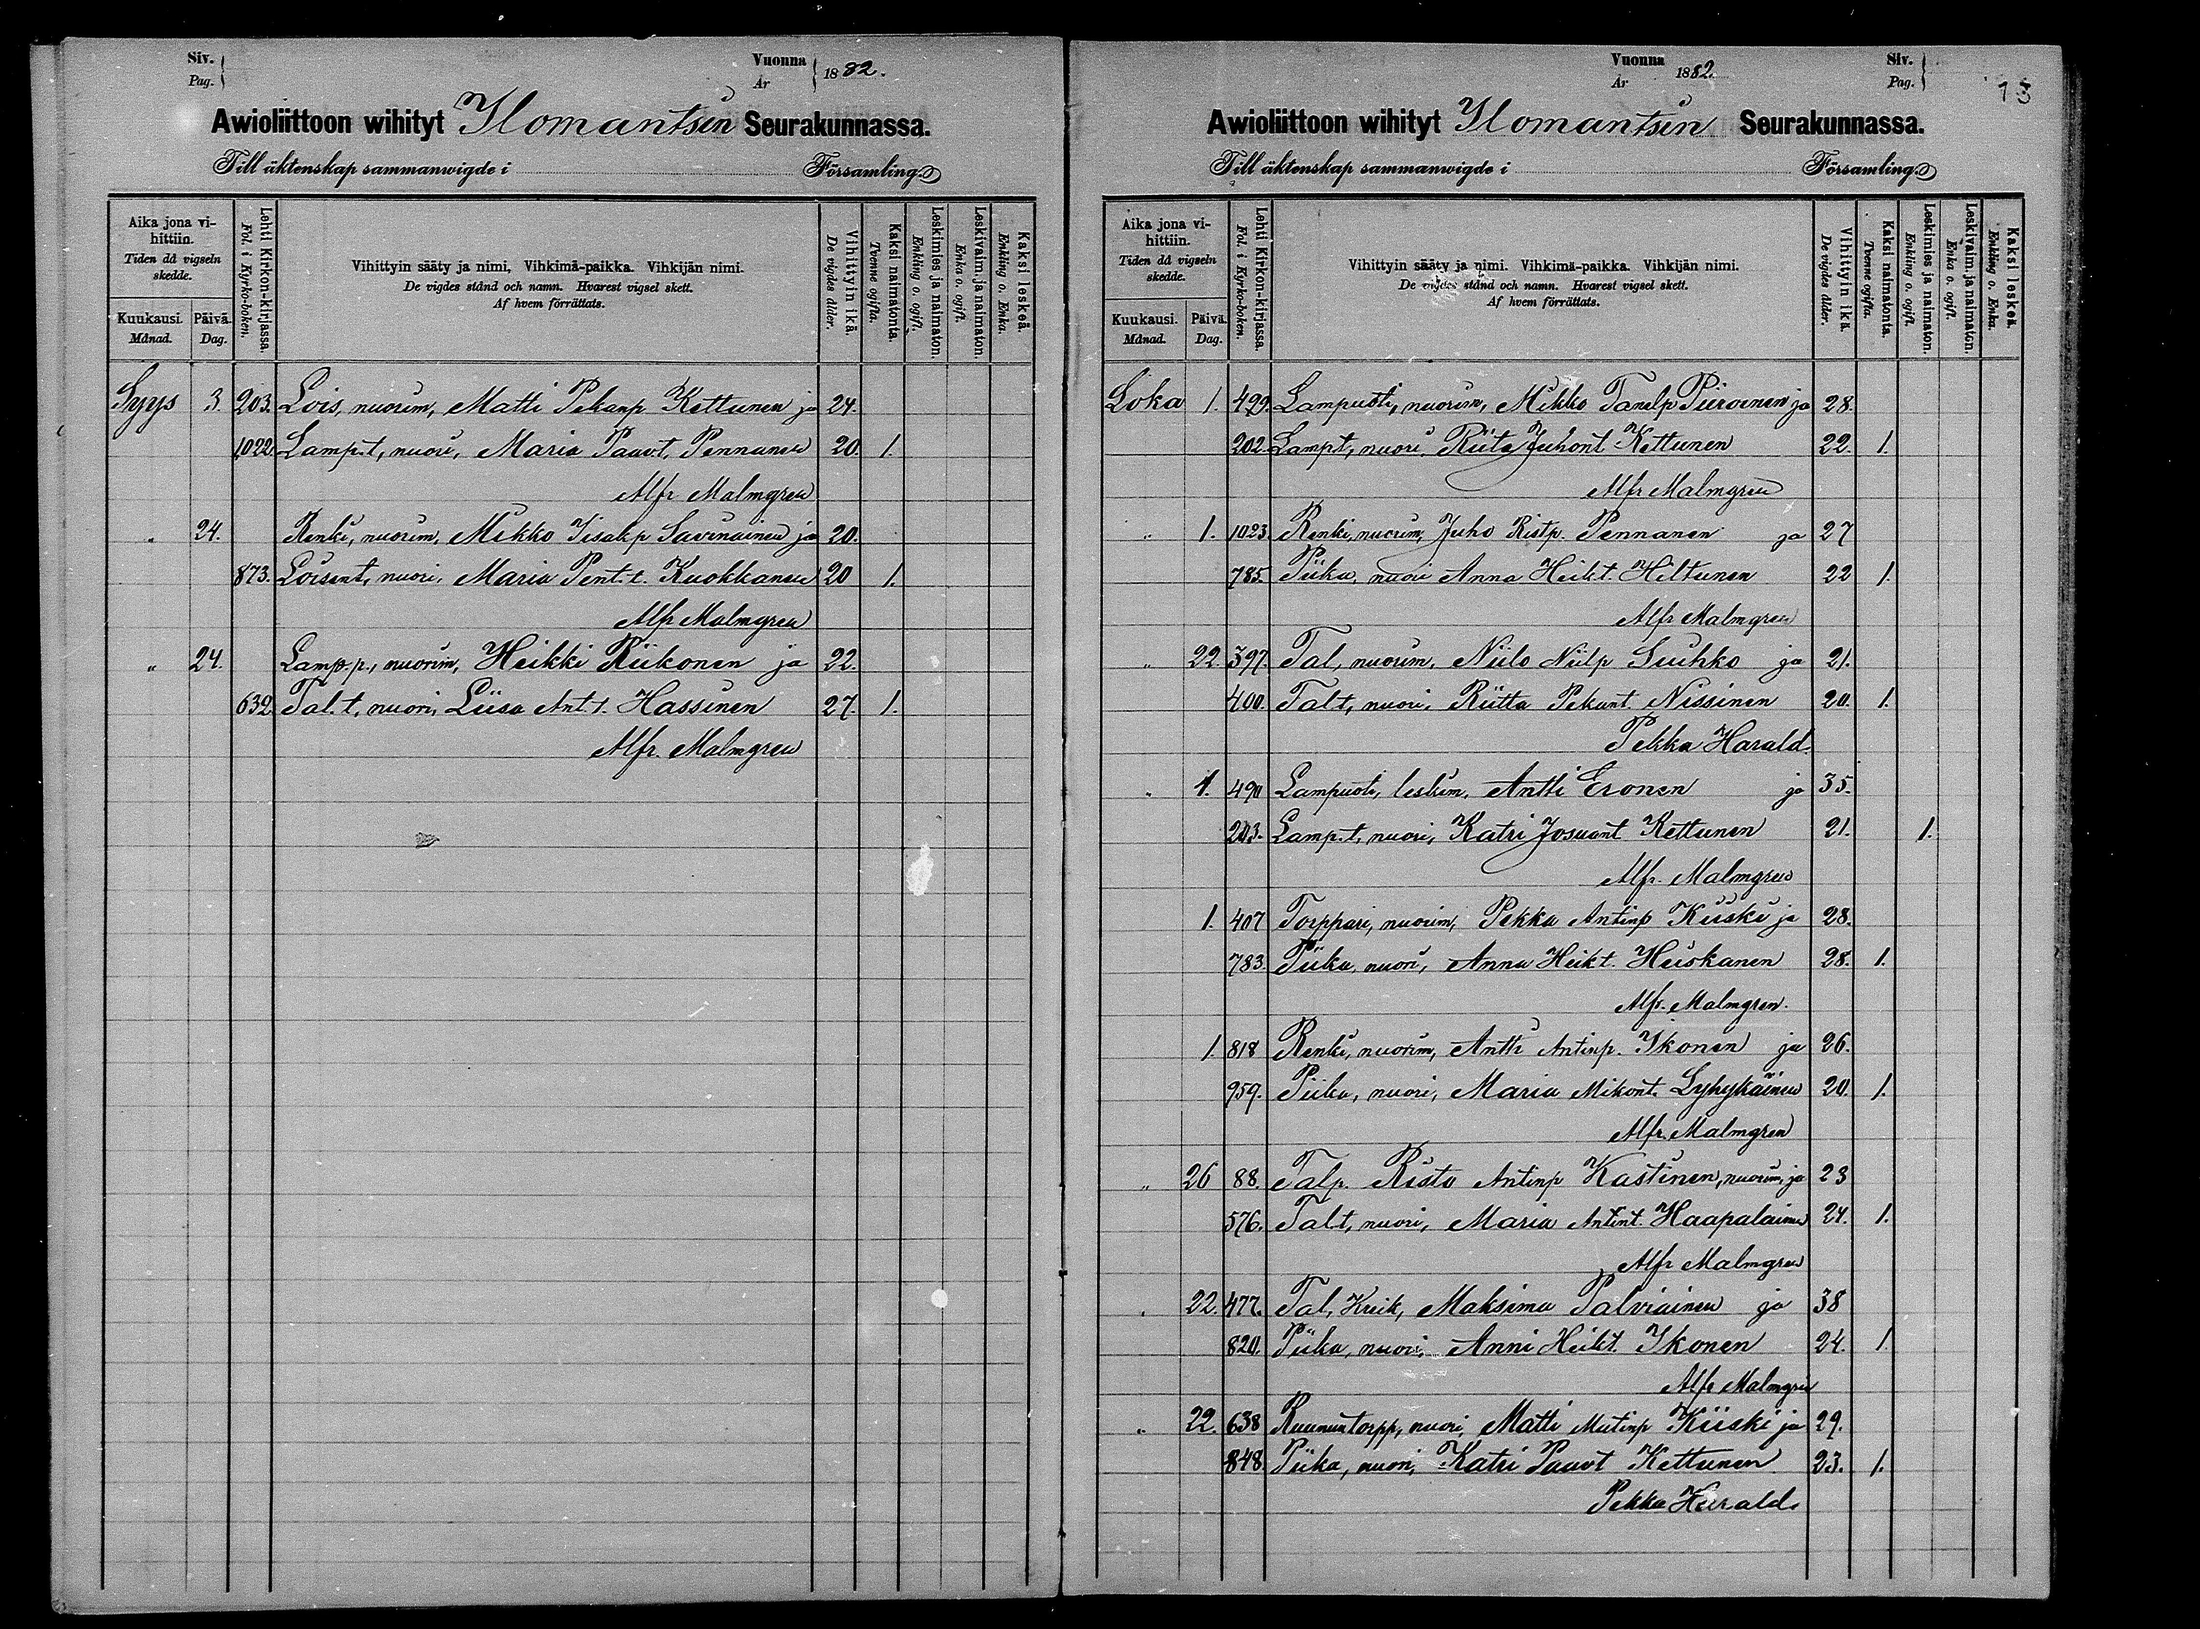 Siv.
Pag.
Vuonna
År
1882.
Awioliittoon wihityt Ilomantsin Seurakunnassa.
Till äktenskap sammanwigde i Församling.
Aika jona vihittiin.
Tiden då vigseln skedde.
Kuukausi.
Månad.
Päivä.
Dag.
Lehti Kirkon-kirjassa.
Fol. i Kyrko-boken.
Vihittyin sääty ja nimi. Vihkimä-paikka. Vihkijän nimi.
De vigdes stånd och namn. Hvarest vigsel skett.
Af hvem förrättats.
Vihittyin ikä.
De vigdes ålder.
Kaksi naimatonta.
Tvenne ogifta.
Leskimies ja naimaton.
Enkling o. ogift.
Leskivaim. ja naimaton.
Enka o. ogift.
Kaksi leskeä.
Enkling o. Enka.
Syys 3. 203. Lois, nuorim, Matti Pekanp Kettunen ja 24.
1022. Lamp.t, nuori, Maria Paavt. Pennanen 20. 1.
Alfr Malmgren
" 24. Renki, nuorim, Mikko Iisakp Savinainen ja 20.
873. Loisent, nuori, Maria Pent.t. Kuokkanen 20 1.
Alfr Malmgren
" 24. Lamp.p., nuorim, Heikki Riikonen ja 22.
632. Tal.t, nuori, Liisa Ant.t. Hassinen 27. 1.
Alfr. Malmgren
Vuonna
År
1882
Siv.
Pag.
13
Awioliittoon wihityt Ilomantsin Seurakunnassa.
Till äktenskap sammanwigde i Församling.
Aika jona vihittiin.
Tiden då vigseln skedde.
Kuukausi.
Månad.
Päivä.
Dag.
Lehti Kirkon-kirjassa.
Fol. i Kyrko-boken.
Vihittyin sääty ja nimi. Vihkimä-paikka. Vihkijän nimi.
De vigdes stånd och namn. Hvarest vigsel skett.
Af hvem förrättats.
Vihittyin ikä.
De vigdes ålder.
Kaksi naimatonta.
Tvenne ogifta.
Leskimies ja naimaton.
Enkling o. ogift.
Leskivaim. ja naimaton.
Enka o. ogift.
Kaksi leskeä.
Enkling o. Enka.
Loka 1. 499. Lampuoti, nuorim, Mikko Tanelp Piiroinen ja 28.
202. Lampt, nuori, Riita Juhont Kettunen 22. 1.
Alfr Malmgren
" 1. 1023. Renki, nuorim, Juho Ristp. Pennanen ja 27
785. Piika, nuori Anna Heikt. Hiltunen 22 1.
Alfr Malmgren
" 22. 397. Tal, nuorim, Niilo Niilp Suihko ja 21.
400. Talt, nuori, Riitta Pekant Nissinen 20. 1.
Pekka Harald.
" 1. 490 Lampuoti, leskim, Antti Eronen ja 35.
203. Lamp.t, nuori, Katri Josuant Kettunen 21. 1.
Alfr. Malmgren
1. 407 Torppari, nuorim, Pekka Antinp Kiiski ja 28.
783. Piika, nuori, Anna Heikt. Heiskanen 28. 1.
Alfr. Malmgren.
1. 818 Renki, nuorim, Antti Antinp. Ikonen ja 26.
959. Piika, nuori, Maria Mikont. Lyhykäinen 20. 1.
Alfr. Malmgren
" 26 88. Talp. Risto Antinp Kastinen, nuorim, ja 23
576. Talt, nuori, Maria Antint. Haapalainen 24. 1.
Alfr Malmgren
" 22. 477. Tal, Kreik, Maksima Palviainen ja 38
820. Piika, nuori, Anni Heikt. Ikonen 24. 1.
Alfr Malmgren
" 22. 638 Ruununtorpp, nuori, Matti Matinp Kiiski ja 29.
848. Piika, nuori, Katri Paavt Kettunen 23. 1.
Pekka Harald.